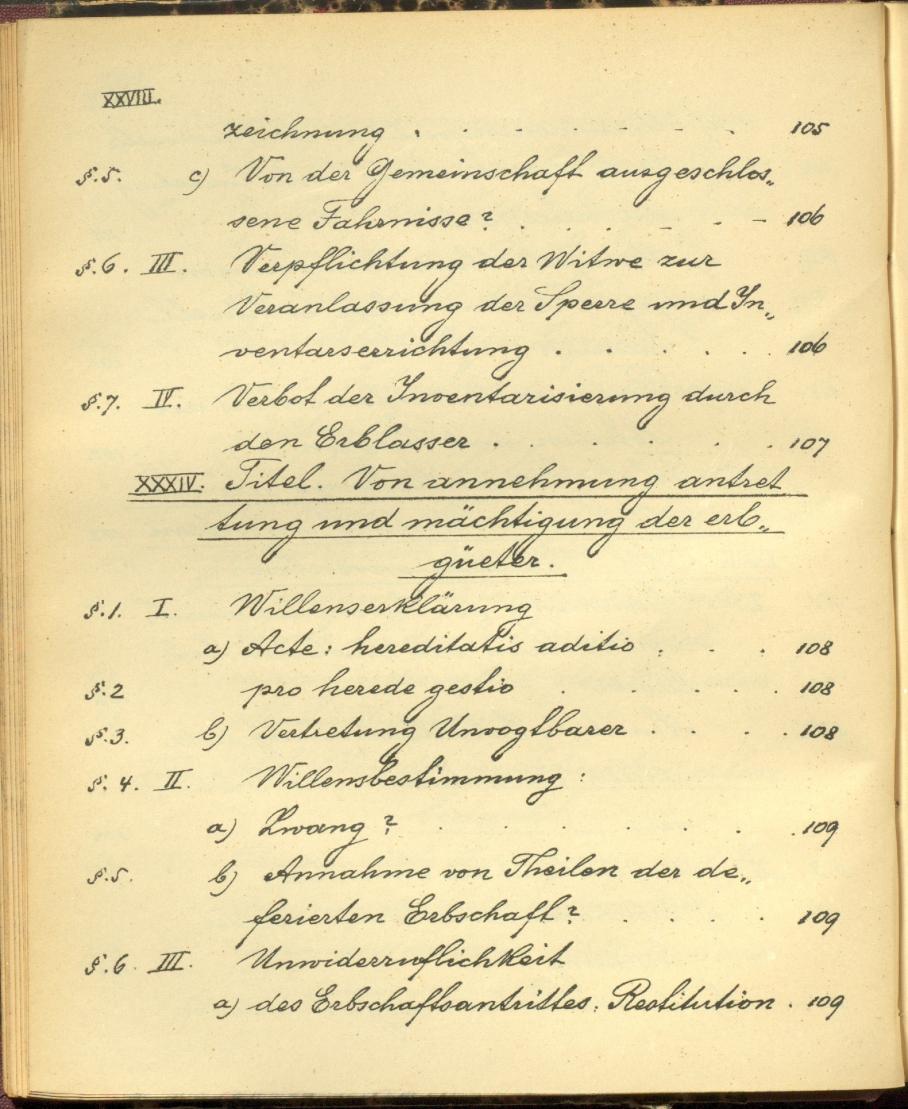 XXVIII.
zeichnung . . . . . . . 105
§.5. c) Von der Gemeinschaft ausgeschlos„
sene Fahrnisse? . . . . - - 106
§.6. III. Verpflichtung der Witwe zur
Veranlassung der Sperre und In„
ventarserrichtung . . . . . . 106
§.7. IV. Verbot der Inventarisierung durch
den Erblasser . . . . . . 107
XXXIV. Titel. Von annehmung antret
tung und mächtigung der erb„
güeter.
§.1. I. Willenserklärung
a) Acte: hereditatis aditio . . . 108
§.2 pro herede gestio . . . . . 108
§.3. b) Vertretung Unvogtbarer . . . . 108
§.4. II. Willensbestimmung :
a) Zwang? . . . . . . . 109
§.5. b) Annahme von Theilen der de„
ferierten Erbschaft? . . . . 109
§.6. III. Unwiderruflichkeit
a) des Erbschaftsantrittes: Restitution . 109